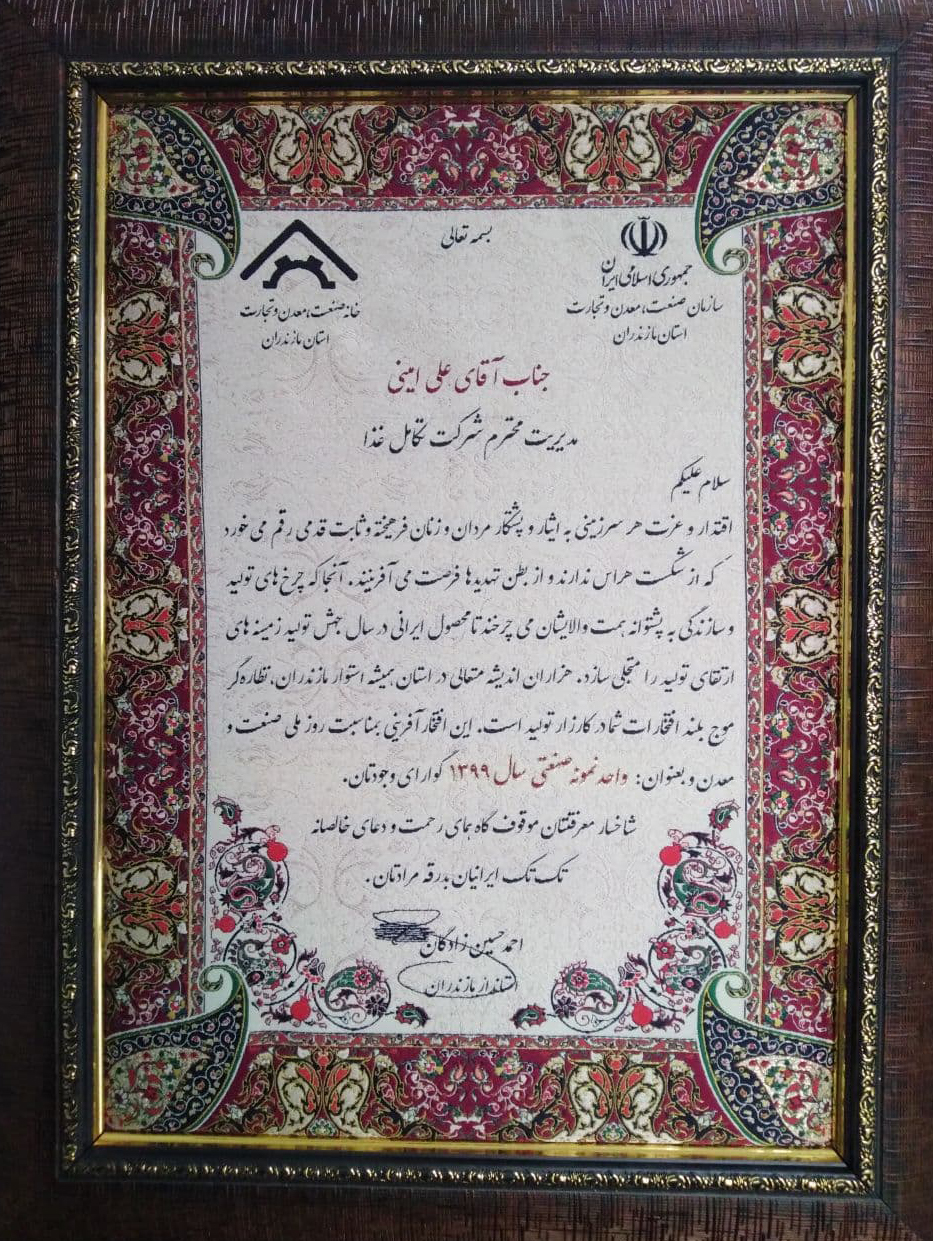 بسمه تعالی
جمهوری اسلامی ایران
سازمان صنعت، معدن و تجارت
استان مازندران
خانه صنعت، معدن و تجارت
استان مازندران
جناب آقای علی امینی
مدیریت محترم شرکت تکامل غذا
سلام علیکم
اقتدار و عزت هر سرزمینی به ایثار و پشتکار مردان و زنان فرهیخته و ثابت قدمی رقم می خورد
که از شکست هراس ندارند و از بطن تهدیدها فرصت می آفرینند. آنجا که چرخ های تولید
و سازندگی به پشتوانه همت والایشان می چرخند تا محصول ایرانی در سال جهش تولید زمینه های
ارتقای تولید را متجلی سازد. هزاران اندیشه متعالی در استان همیشه استوار مازندران، نظاره گر
موج بلند افتخارات شما در کارزار تولید است. این افتخار آفرینی بمناسبت روز ملی صنعت و
معدن و بعنوان: واحد نمونه صنعتی سال ۱۳۹۹ گوارای وجودتان.
شاخسار معرفتتان موقوف گاه همای رحمت و دعای خالصانه
تک تک ایرانیان بدرقه مرادتان.
احمد حسین زادگان
استاندار مازندران